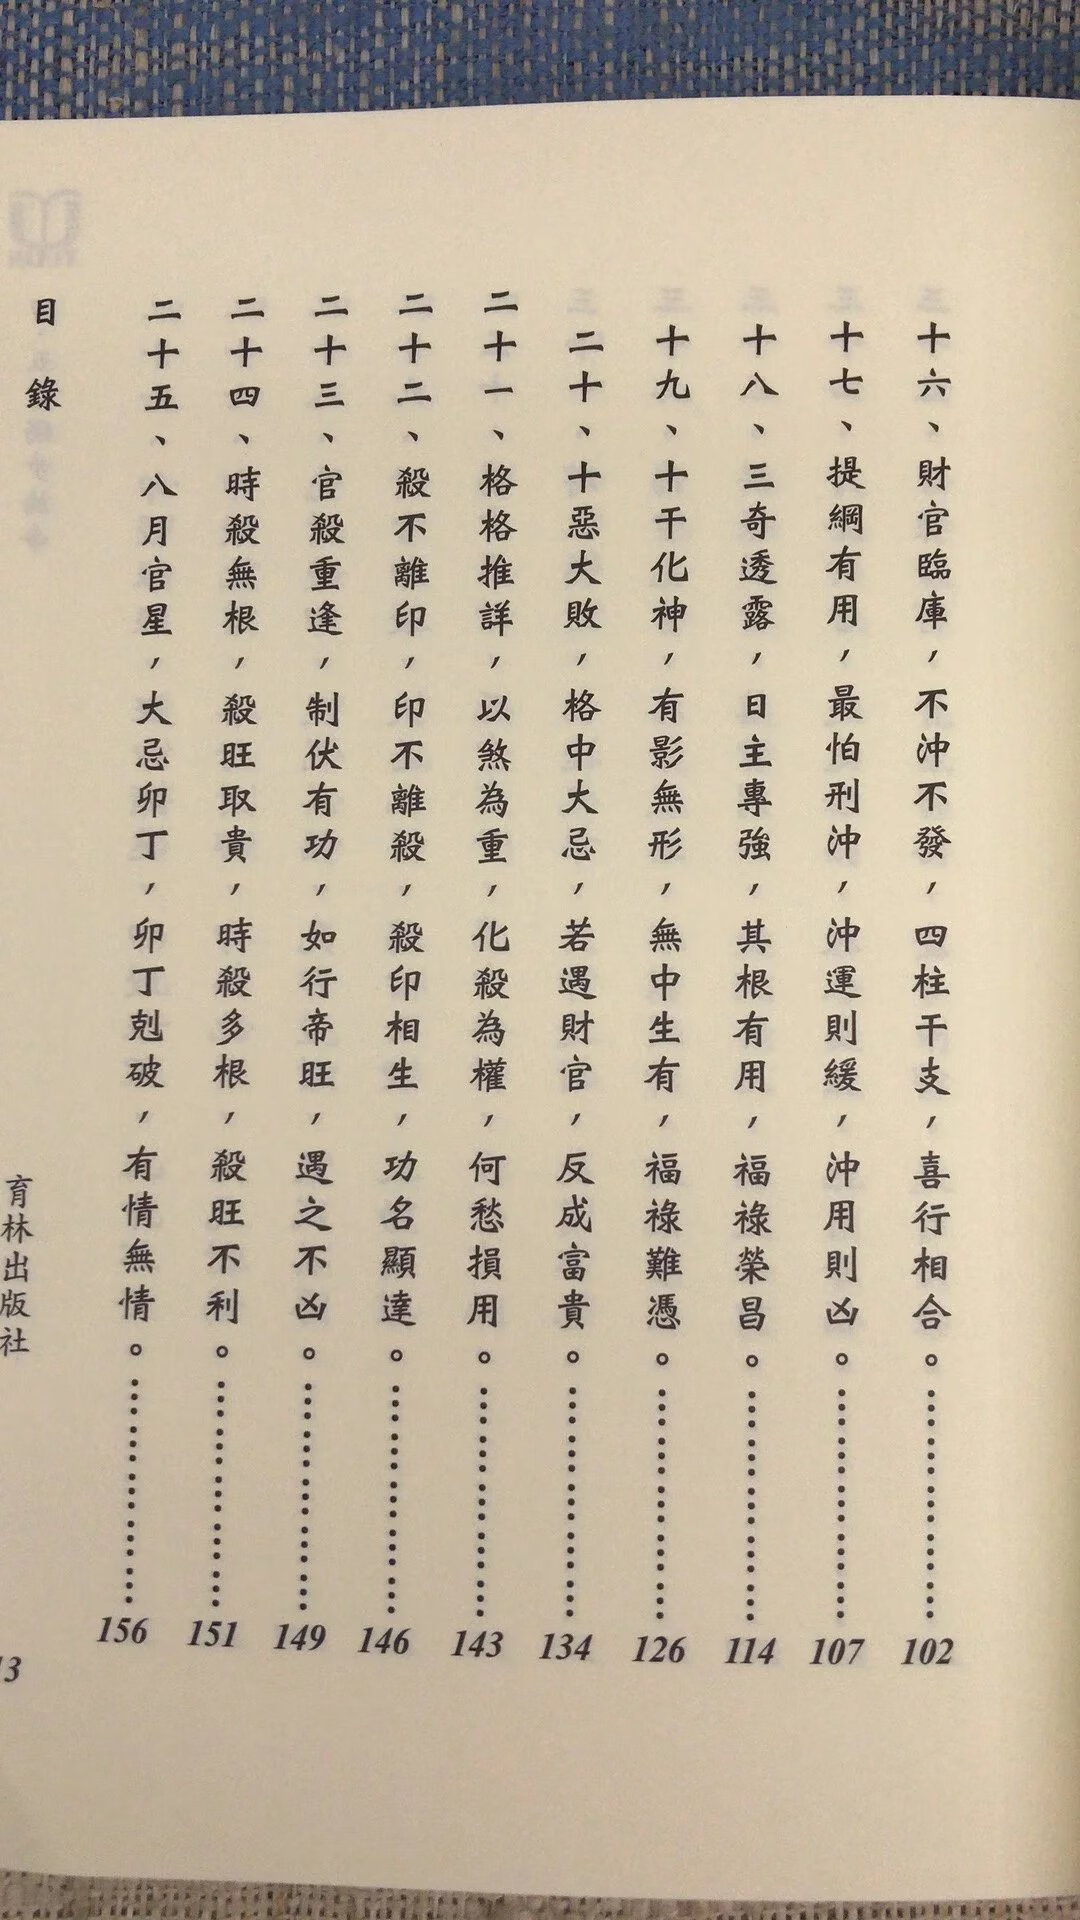 十六、財官臨庫，不沖不發，四柱干支，喜行相合。⋯⋯⋯⋯⋯⋯⋯⋯102
十七、提綱有用，最怕刑沖，沖運則緩，沖用則凶。⋯⋯⋯⋯⋯⋯⋯⋯107
十八、三奇透露，日主專強，其根有用，福祿榮昌。⋯⋯⋯⋯⋯⋯⋯⋯114
十九、十干化神，有影無形，無中生有，福祿難憑。⋯⋯⋯⋯⋯⋯⋯⋯126
二十、十惡大敗，格中大忌，若遇財官，反成富貴。⋯⋯⋯⋯⋯⋯⋯⋯134
二十一、格格推詳，以煞為重，化殺為權，何愁損用。⋯⋯⋯⋯⋯⋯⋯⋯143
二十二、殺不離印，印不離殺，殺印相生，功名顯達。⋯⋯⋯⋯⋯⋯⋯⋯146
二十三、官殺重逢，制伏有功，如行帝旺，遇之不凶。⋯⋯⋯⋯⋯⋯⋯⋯149
二十四、時殺無根，殺旺取貴，時殺多根，殺旺不利。⋯⋯⋯⋯⋯⋯⋯⋯151
二十五、八月官星，大忌卯丁，卯丁剋破，有情無情。⋯⋯⋯⋯⋯⋯⋯⋯156
目錄
育林出版社
13